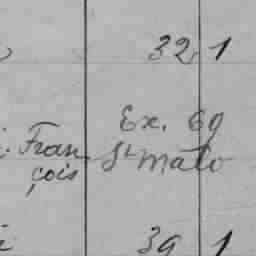 32 1
Ex. 69
Fran St malo
çois
39 1